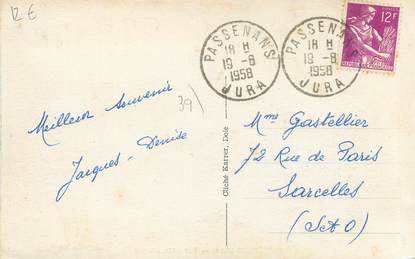 12 €
PASSENANS
18 H
19-8
1958
JURA
PASSENANS
18 H
19-8
1958
JURA
12F
39
Meilleur Souvenir
Jacques - Denise
Cliché Karrer, Dole
Mme Gastellier
72 Rue de Paris
Sarcelles
(S&O)